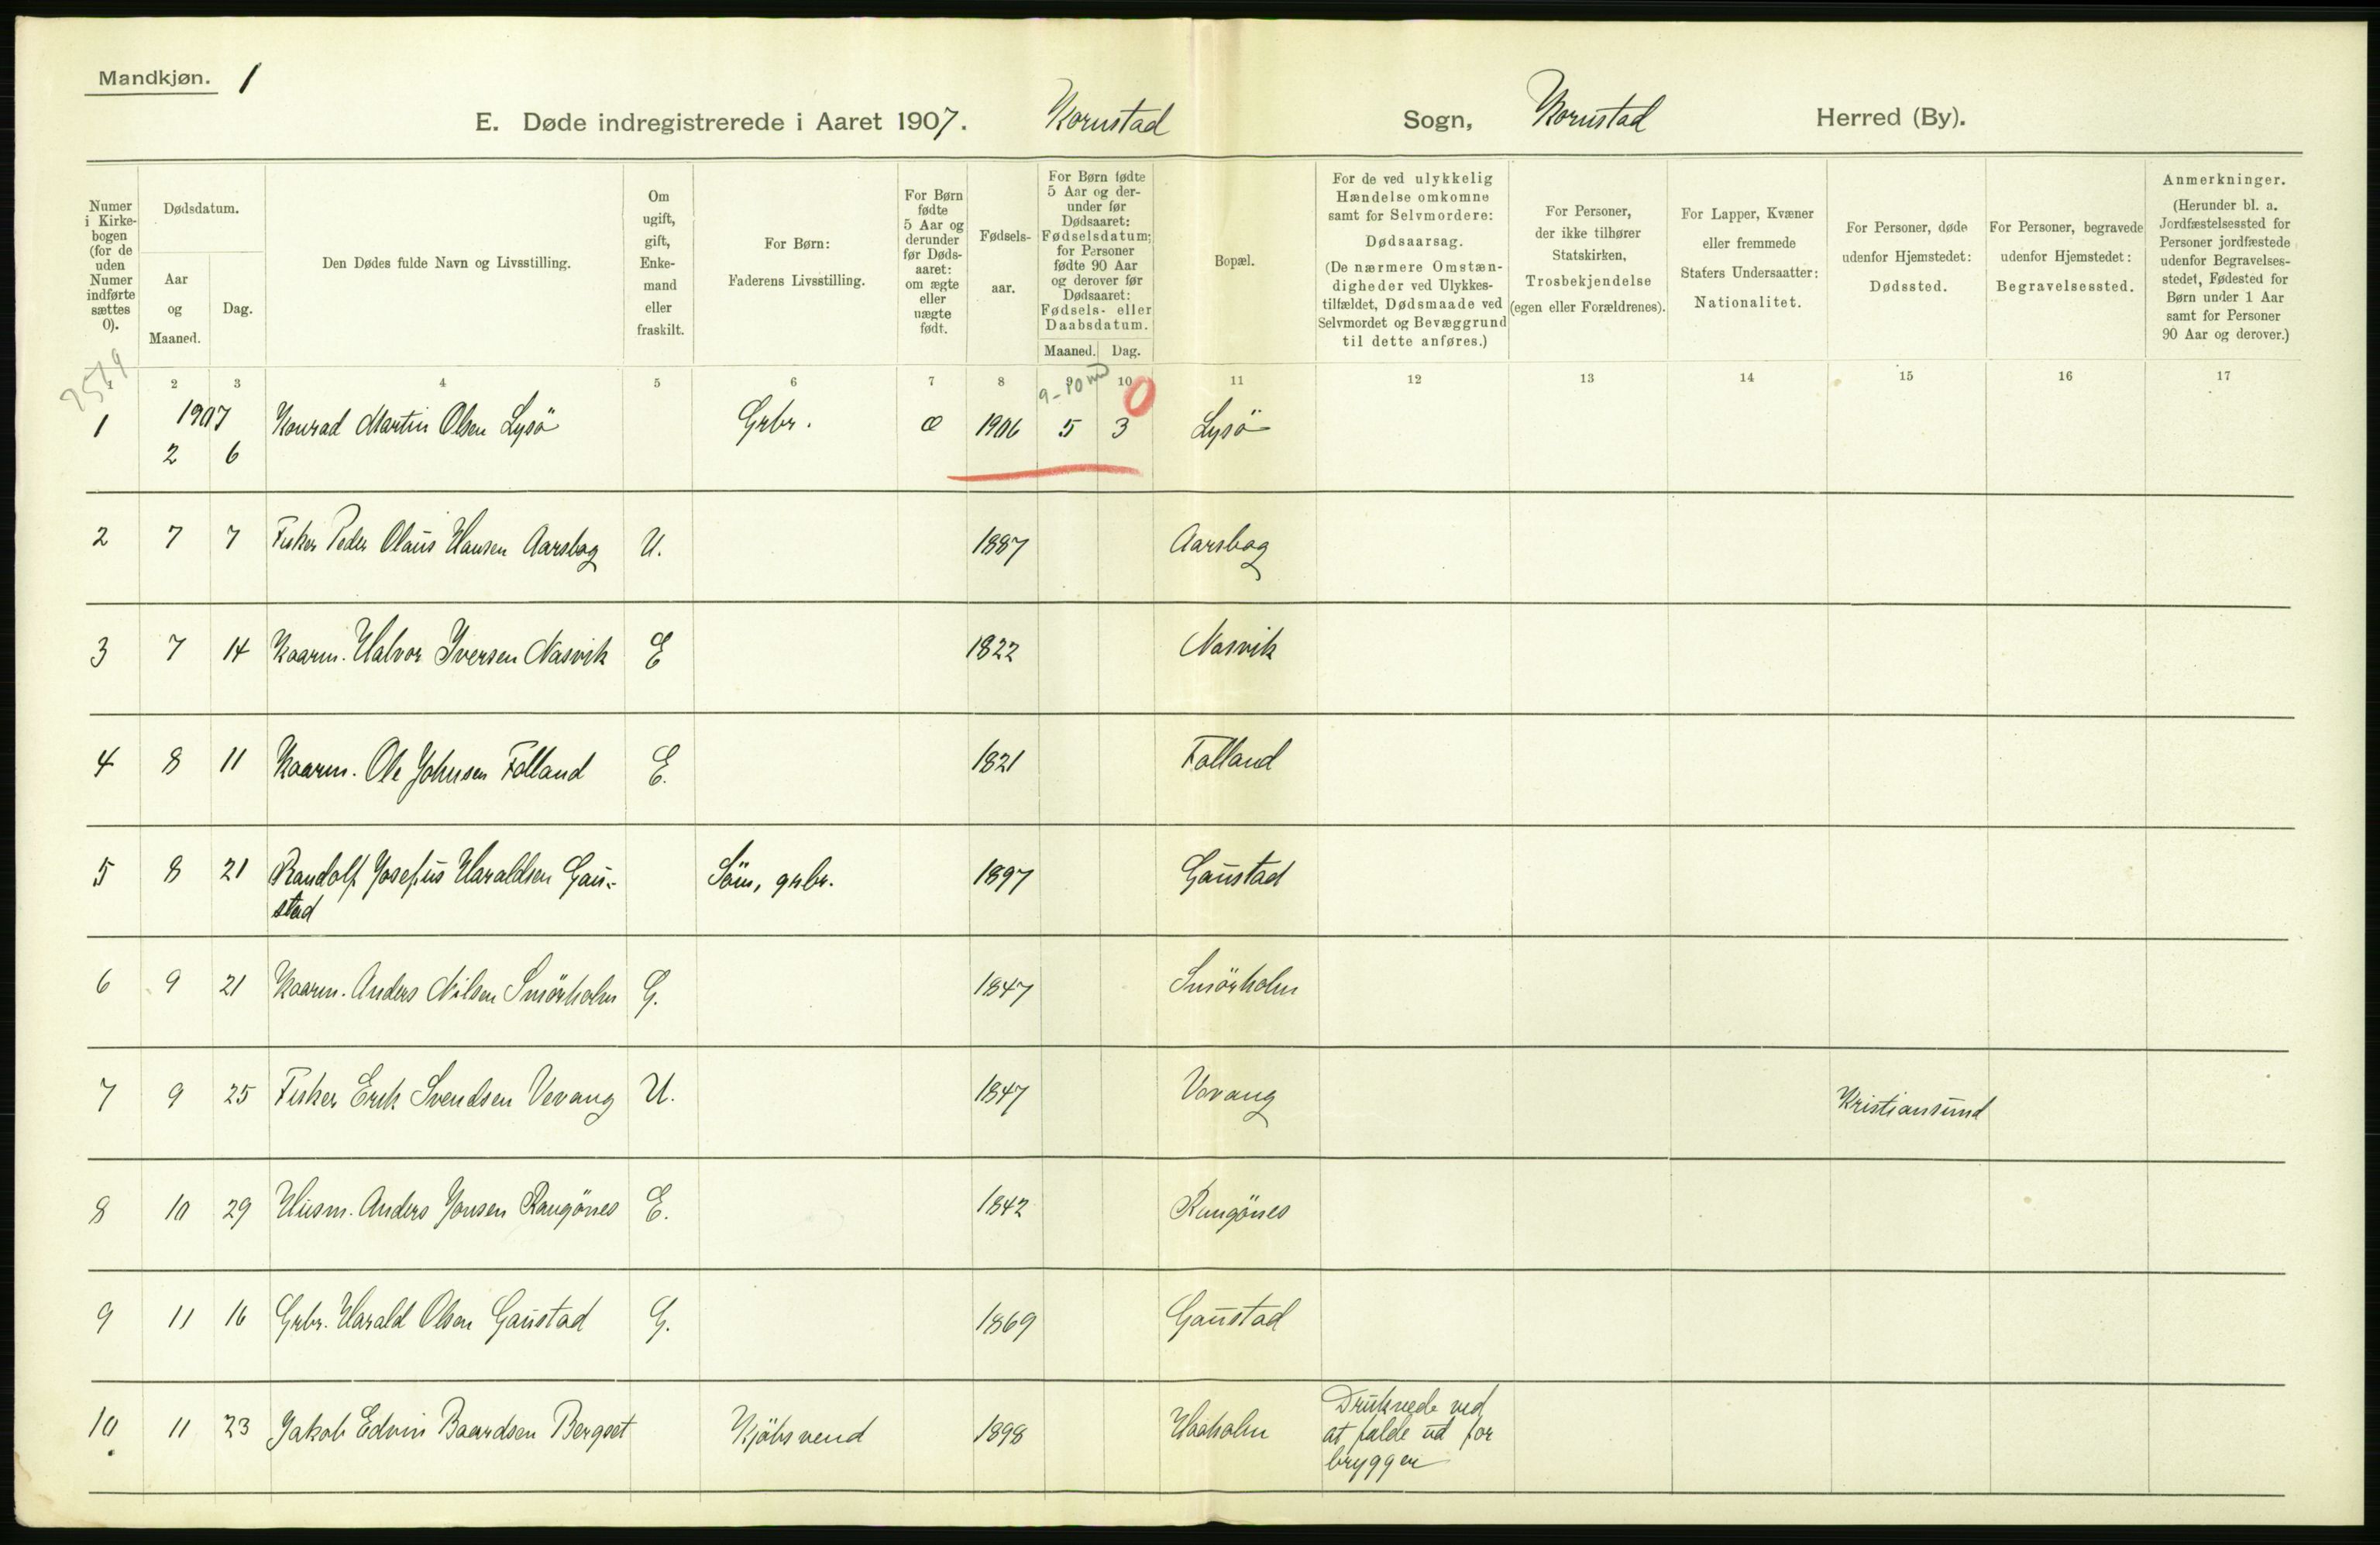 Mandkjøn. 1
E. Døde indregistrerede i Aaret 1907. Kornstad Sogn, Kornstad Herred (By).
Numer i Kirkebogen (for de uden Numer indførte sættes 0).
Dødsdatum.
Aar og Maaned.
Dag.
Den Dødes fulde Navn og Livsstilling.
Om ugift, gift, Enkemand eller fraskilt.
For Børn: Faderens Livsstilling.
For Børn fødte 5 Aar og derunder før Dødsaaret: om ægte eller uægte født.
Fødselsaar.
For Børn fødte 5 Aar og derunder før Dødsaaret: Fødselsdatum; for Personer fødte 90 Aar og derover før Dødsaaret: Fødsels- eller Daabsdatum.
Maaned. Dag.
Bopæl.
For de ved ulykkelig Hændelse omkomne samt for Selvmordere: Dødsaarsag. (De nærmere Omstændigheder ved Ulykkestilfældet, Dødsmaade ved Selvmordet og Bevæggrund til dette anføres.)
For Personer, der ikke tilhører Statskirken, Trosbekjendelse (egen eller Forældrenes).
For Lapper, Kvæner eller fremmede Staters Undersaatter: Nationalitet.
For Personer, døde udenfor Hjemstedet: Dødssted.
For Personer, begravede udenfor Hjemstedet: Begravelsessted.
Anmerkninger. (Herunder bl. a. Jordfæstelsessted for Personer jordfæstede udenfor Begravelsesstedet, Fødested for Børn under 1 Aar samt for Personer 90 Aar og derover.)
1 2 3 4 5 6 7 8 9 10 11 12 13 14 15 16 17
9-10 md 0
1 1907 2 6 Konrad Martin Olsen Lysö Grbr. Æ 1906 5 3 Lysö
2 7 7 Fisker Peder Olaus Hansen Aarsbog U. 1887 Aarsbog
3 7 14 Kaarm. Halvor Iversen Nasvik E 1822 Nasvik
4 8 11 Kaarm. Ole Johnsen Folland E. 1821 Folland
5 8 21 Randolf Josefus Haraldsen Gau- Söm, grbr. 1897 Gaustad
stad
6 9 21 Kaarm. Anders Nilsen Smörholm G. 1847 Smörholm
7 9 25 Fisker Erik Svendsen Vevang U. 1847 Vevang Kristiansund
8 10 29 Husm. Anders Jonsen Rangönes E. 1842 Rangönes
9 11 16 Grbr. Harald Olsen Gaustad G. 1869 Gaustad
10 11 23 Jakob Edvin Baardsen Bergset Kjöbsvend 1898 Haaholm Druknede ved
at falde ud for
bryggen